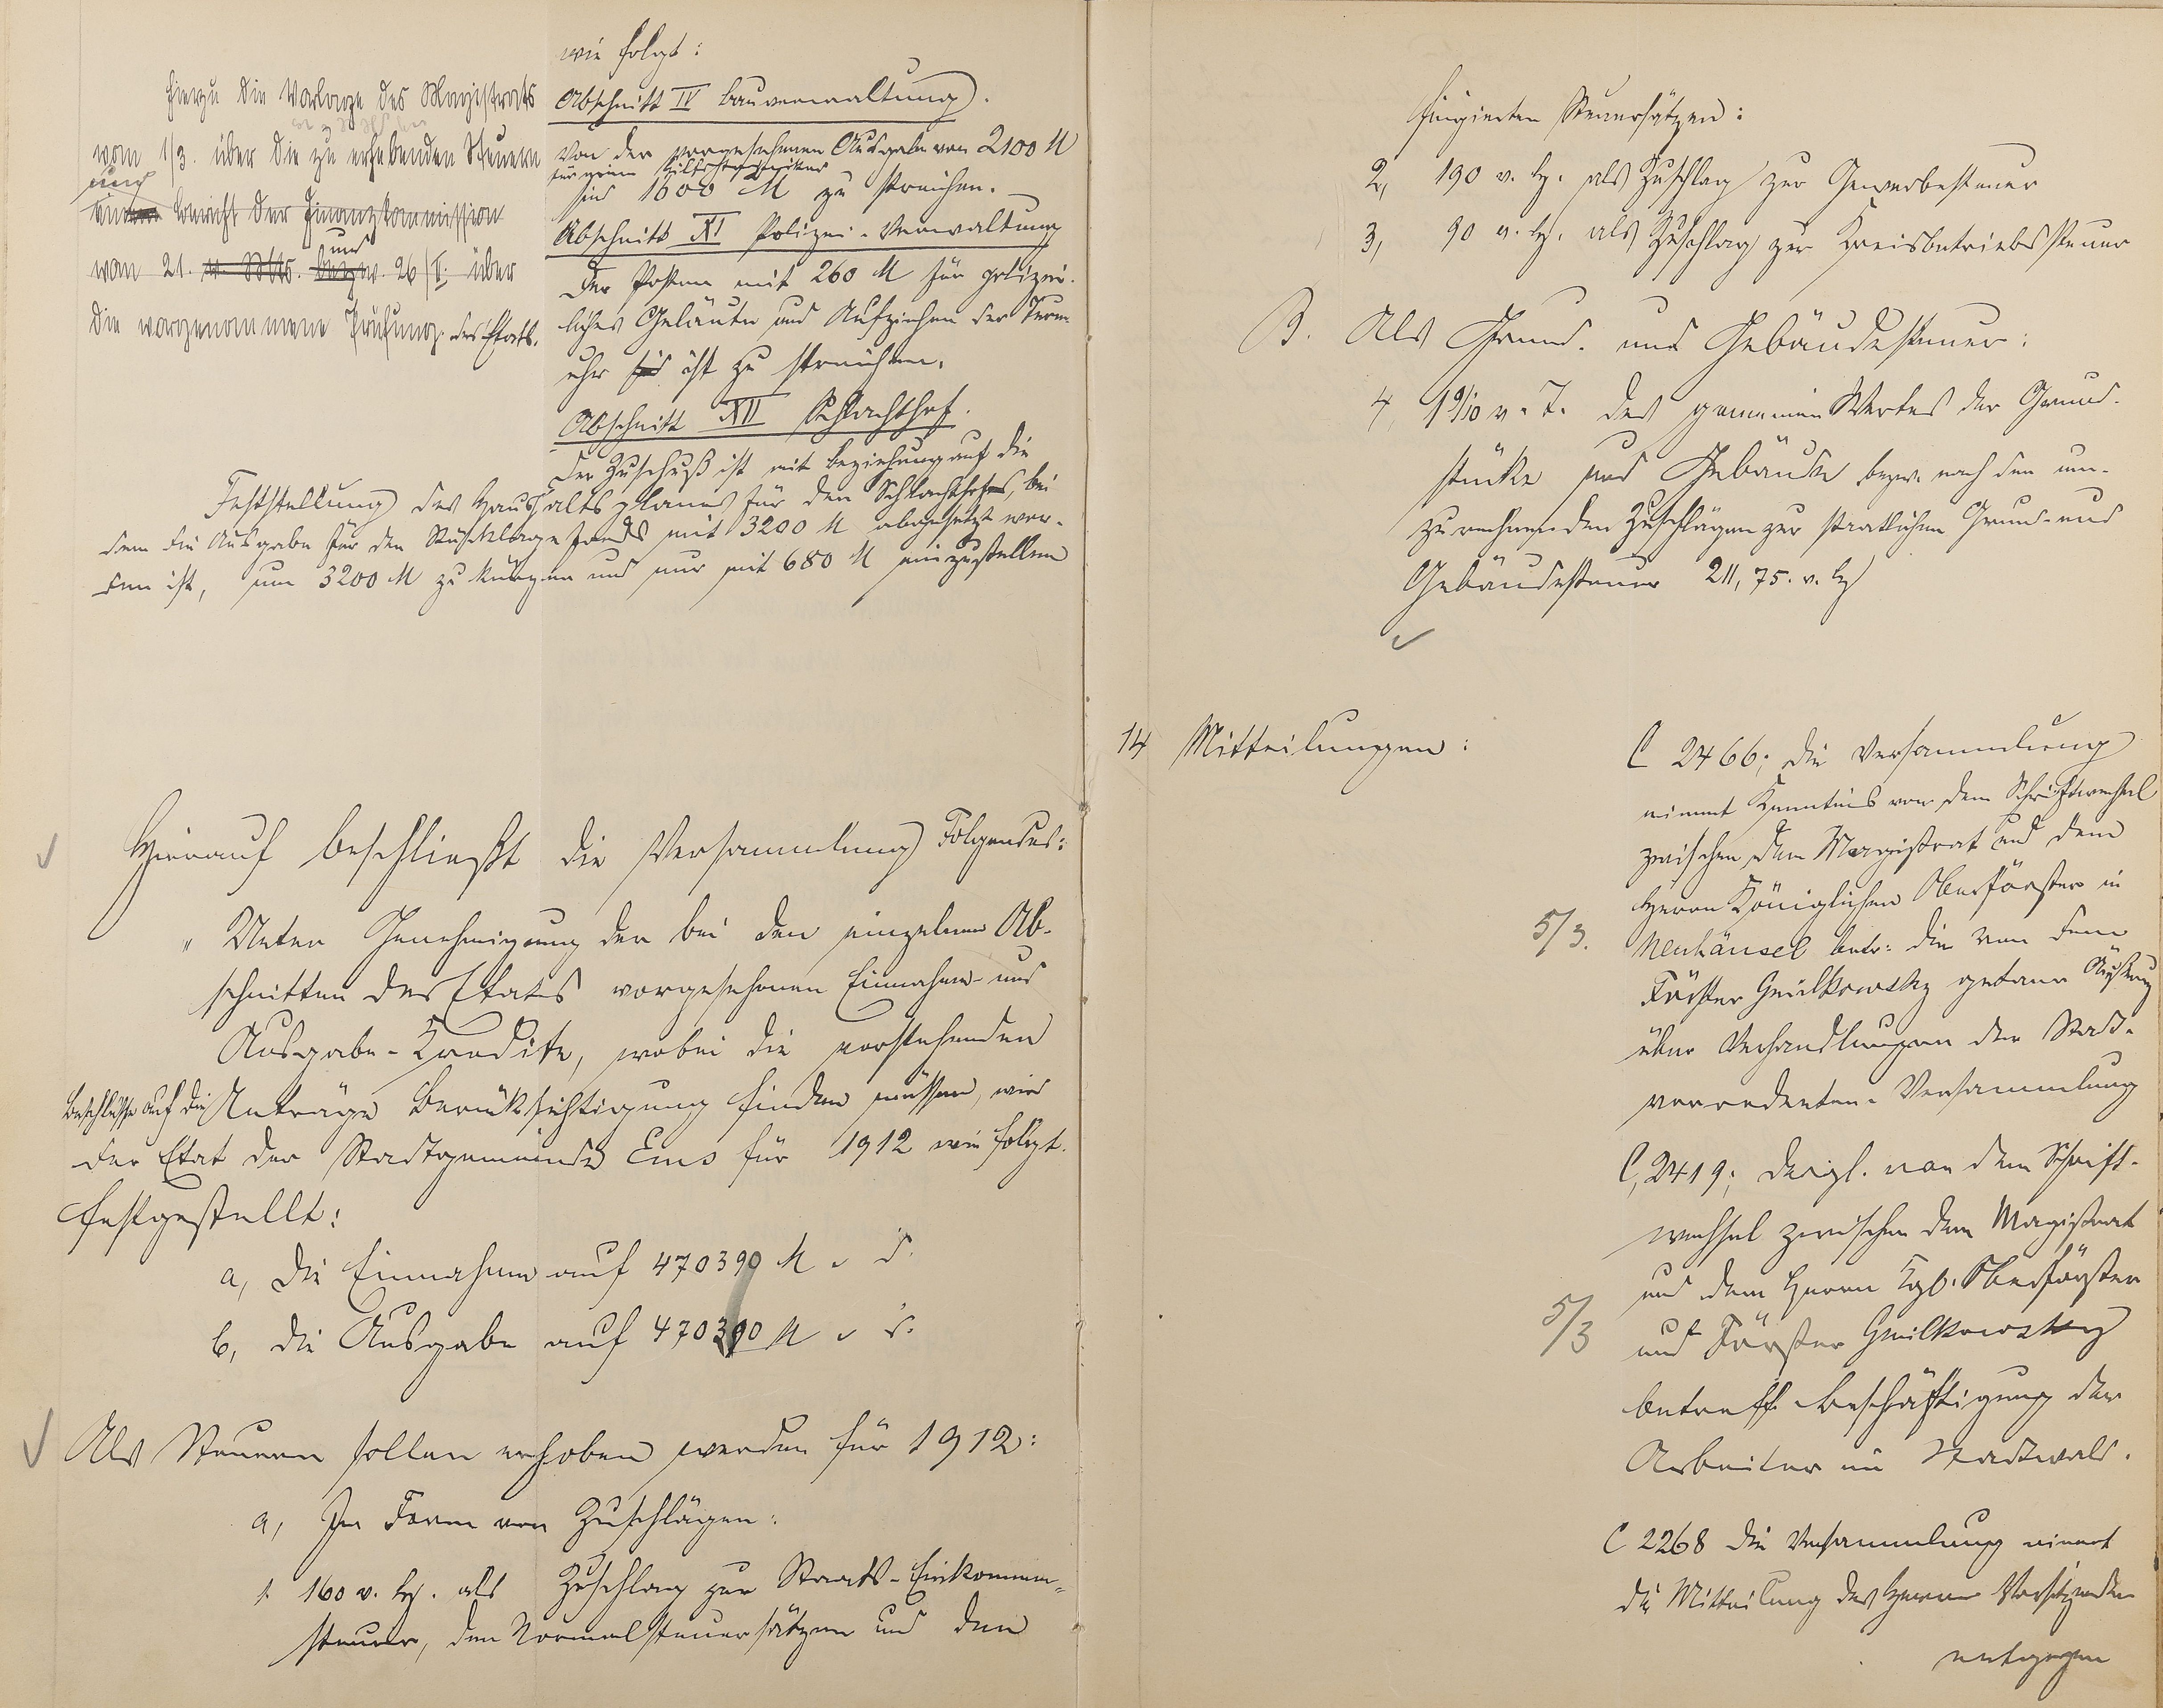 Hierzu die Vorlage des Magistrats
vom 1/3. über die zu erhebenden Steuern
und
Bericht der Finanzkommission
und
vom 21. v. Mts. bezw. 26/II. über
die vorgenommene Prüfung des Etats.
wie folgt:
Abschnitt IV Bauverwaltung.
Von der vorgesehenen Ausgabe von 2100 M
für einen Hilfstechniker
sind 1600 M zu streichen.
Abschnitt XI Polizei-Verwaltung
Der Posten mit 260 M für polizei-
liches Geläute und Aufziehen der Turm-
uhr sind ist zu streichen.
Abschnitt XII Schlachthof.
Der Zuschuß ist mit Beziehung auf die
Feststellung des Haushaltsplanes für den Schlachthof, bei
dem die Ausgabe für den Rücklagefonds mit 3200 M abgesetzt wor-
den ist, um 3200 M zu kürzen und nur mit 680 M einzustellen
Hierauf beschließt die Versammlung Folgendes:
„Unter Genehmigung der bei den einzelnen Ab-
schnitten des Etats vorgesehenen Einnahme- und
Ausgabe-Kredite, wobei die vorstehenden
Beschlüsse auf die Anträge Berücksichtigung finden müssen, wird
der Etat der Stadtgemeinde Ems für 1912 wie folgt
festgestellt:
a, die Einnahmen auf 470390 M
b, die Ausgabe auf 470390 M
Als Steuern sollen erhoben werden für 1912:
a, In Form von Zuschlägen:
1. 160 v. H. als Zuschlag zur Staats-Einkommen-
steuer, den Normalsteuersätzen und den
fingierten Steuersätzen:
2, 190 v. H. als Zuschlag zur Gewerbesteuer
3, 90 v. H. als Zuschlag zur Kreisbetriebssteuer
B. Als Grund- und Gebäudesteuer:
4, 1 9/10 v. T. des gemeinen Wertes der Grund-
stücke und Gebäude bezw. nach den um-
zurechnenden Zuschlägen zur staatlichen Grund- und
Gebäudesteuer 211,75 v. H.
14 Mitteilungen:
C 2466; die Versammlung
nimmt Kenntnis von dem Schriftwechsel
zwischen dem Magistrat und dem
Herrn Königlichen Oberförster in
5/3.
Neuhäusel betr. die von dem
Förster Gnilkowsky getane Äußerung
über Verhandlungen der Stadt-
verordneten-Versammlung
C, 2419; desgl. von dem Schrift-
wechsel zwischen dem Magistrat
und dem Herrn Kgl. Oberförster
5/3
und Förster Gnilkowsky
betreff. Beschäftigung der
Arbeiter im Stadtwald.
C 2268 die Versammlung nimmt
die Mitteilung des Herrn Vorsitzenden
entgegen